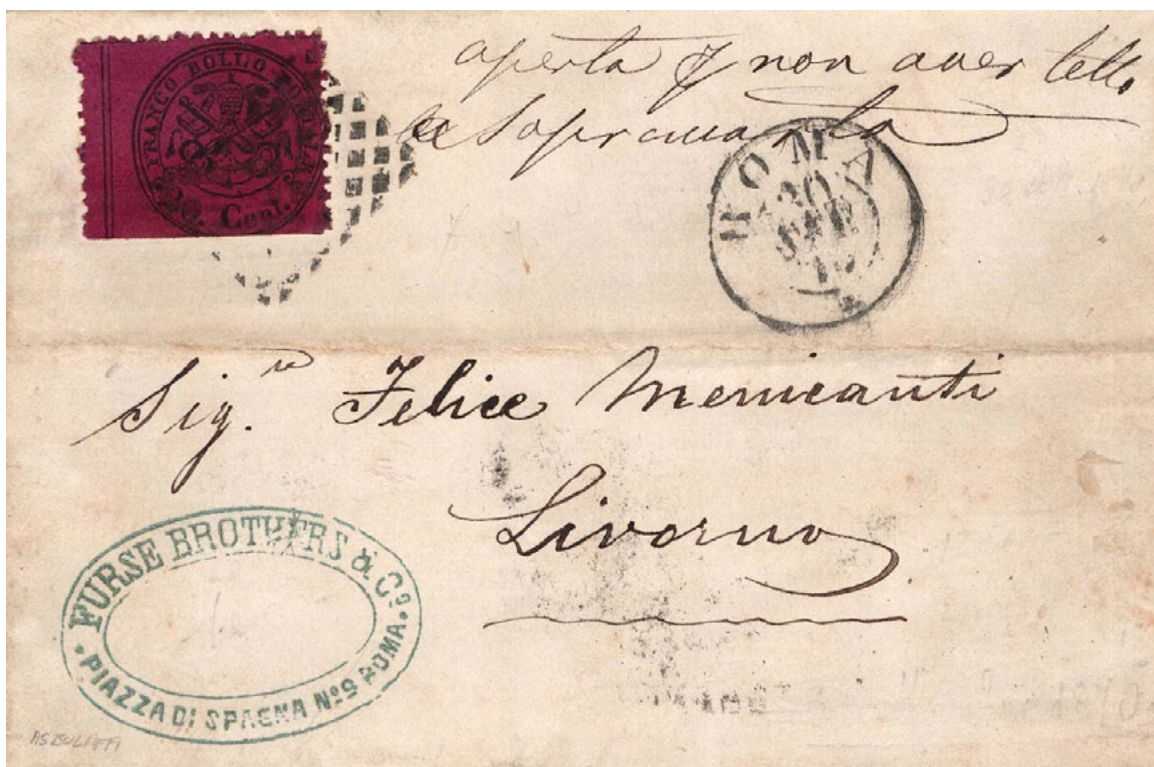 FRANCO BOLLO POSTALE
20 Cent.
aperta p non aver letto
la soprascritta
ROMA
20
Sig.re Felice Menicanti
Livorno
FURSE BROTHERS & Co.
PIAZZA DI SPAGNA No9 ROMA.